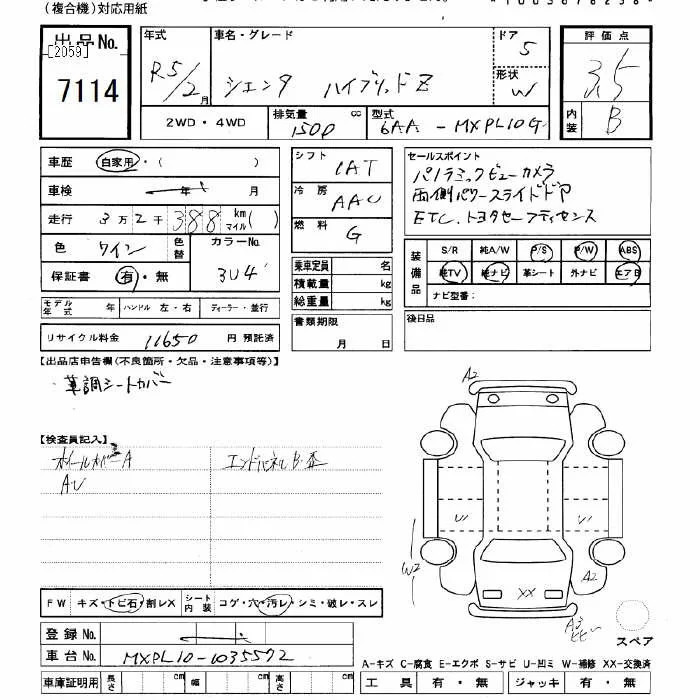 (複合機)対応用紙
出品No.
[2059]
7114
年式
R5/2月
車名・グレード
シエンタ ハイブリッドZ
ドア
5
形状
W
評価点
3.5
内装
B
2WD・4WD
排気量
1500 cc
型式
6AA-MXPL10G
車歴 自家用・( )
車検 年 月
走行 3万2千388 km マイル( )
色 ワイン 色替 カラーNo. 3U4
保証書 有・無
モデル年式 年 ハンドル 左・右 ディーラー・並行
リサイクル料金 11650 円 預託済
シフト IAT
冷房 AAC
燃料 G
乗車定員 名
積載量 kg
総重量 kg
書類期限
月 日
セールスポイント
パノラミックビューカメラ
両側パワースライドドア
ETC.トヨタセーフティセンス
装備品
S/R 純A/W P/S P/W ABS
純TV 純ナビ 革シート 外ナビ エアB
ナビ型番:
後日品
【出品店申告欄(不良箇所・欠品・注意事項等)】
・革調シートカバー
【検査員記入】
ホイールカバーA エンドパネルB・歪
AU
A2
U1 U1
W2
A2
XX
A3
スペア
FW キズ・トビ石・割レX シート内装 コゲ・穴・汚レ・シミ・破レ・スレ
登録No.
車台No. MXPL10-1035572
車庫証明用 長さ cm 幅 cm 高さ cm
A-キズ C-腐食 E-エクボ S-サビ U-凹ミ W-補修 XX-交換済
工具 有・無 ジャッキ 有・無